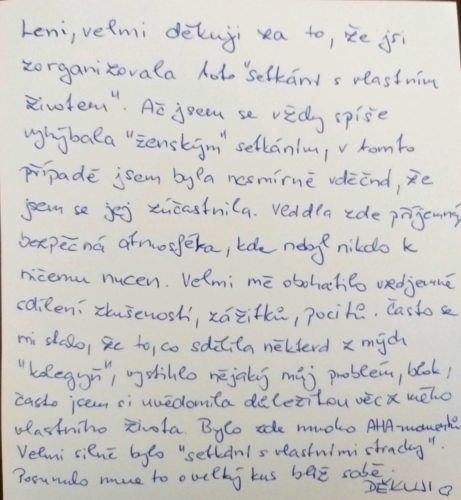 Leni, velmi děkuji za to, že jsi
zorganizovala toto "setkání s vlastním
životem". Ač jsem se vždy spíše
vyhýbala "ženským" setkáním, v tomto
případě jsem byla nesmírně vděčná, že
jsem se jej zúčastnila. Vládla zde příjemná,
bezpečná atmosféra, kde nebyl nikdo k
ničemu nucen. Velmi mě obohatilo vzájemné
sdílení zkušeností, zážitků, pocitů. Často se
mi stalo, že to, co sdělila některá z mých
"kolegyň", vystihlo nějaký můj problém, blok;
často jsem si uvědomila důležitou věc z mého
vlastního života. Bylo zde mnoho AHA-momentů.
Velmi silné bylo "setkání s vlastními strachy".
Posunulo mne to o velký kus blíž sobě.
DĚKUJI ♡